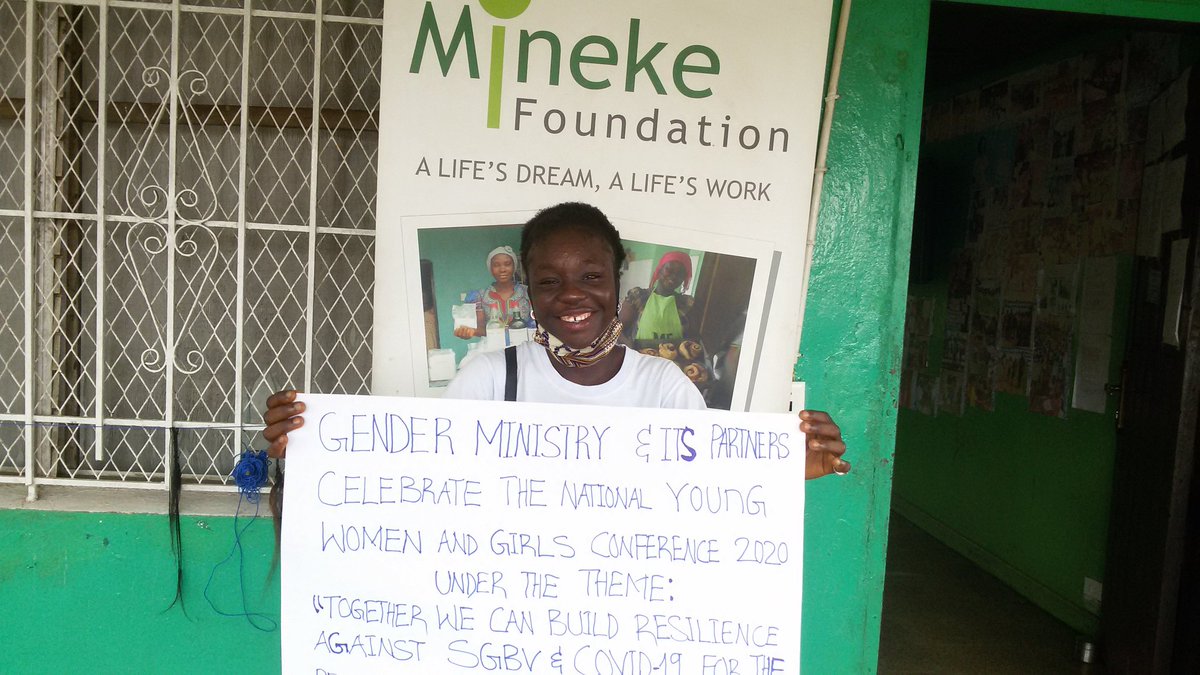 Mineke
Foundation
A LIFE'S DREAM, A LIFE'S WORK
GENDER MINISTRY & ITS PARTNERS
CELEBRATE THE NATIONAL YOUNG
WOMEN AND GIRLS CONFERENCE 2020
UNDER THE THEME:
"TOGETHER WE CAN BUILD RESILIENCE
AGAINST SGBV & COVID-19 FOR THE